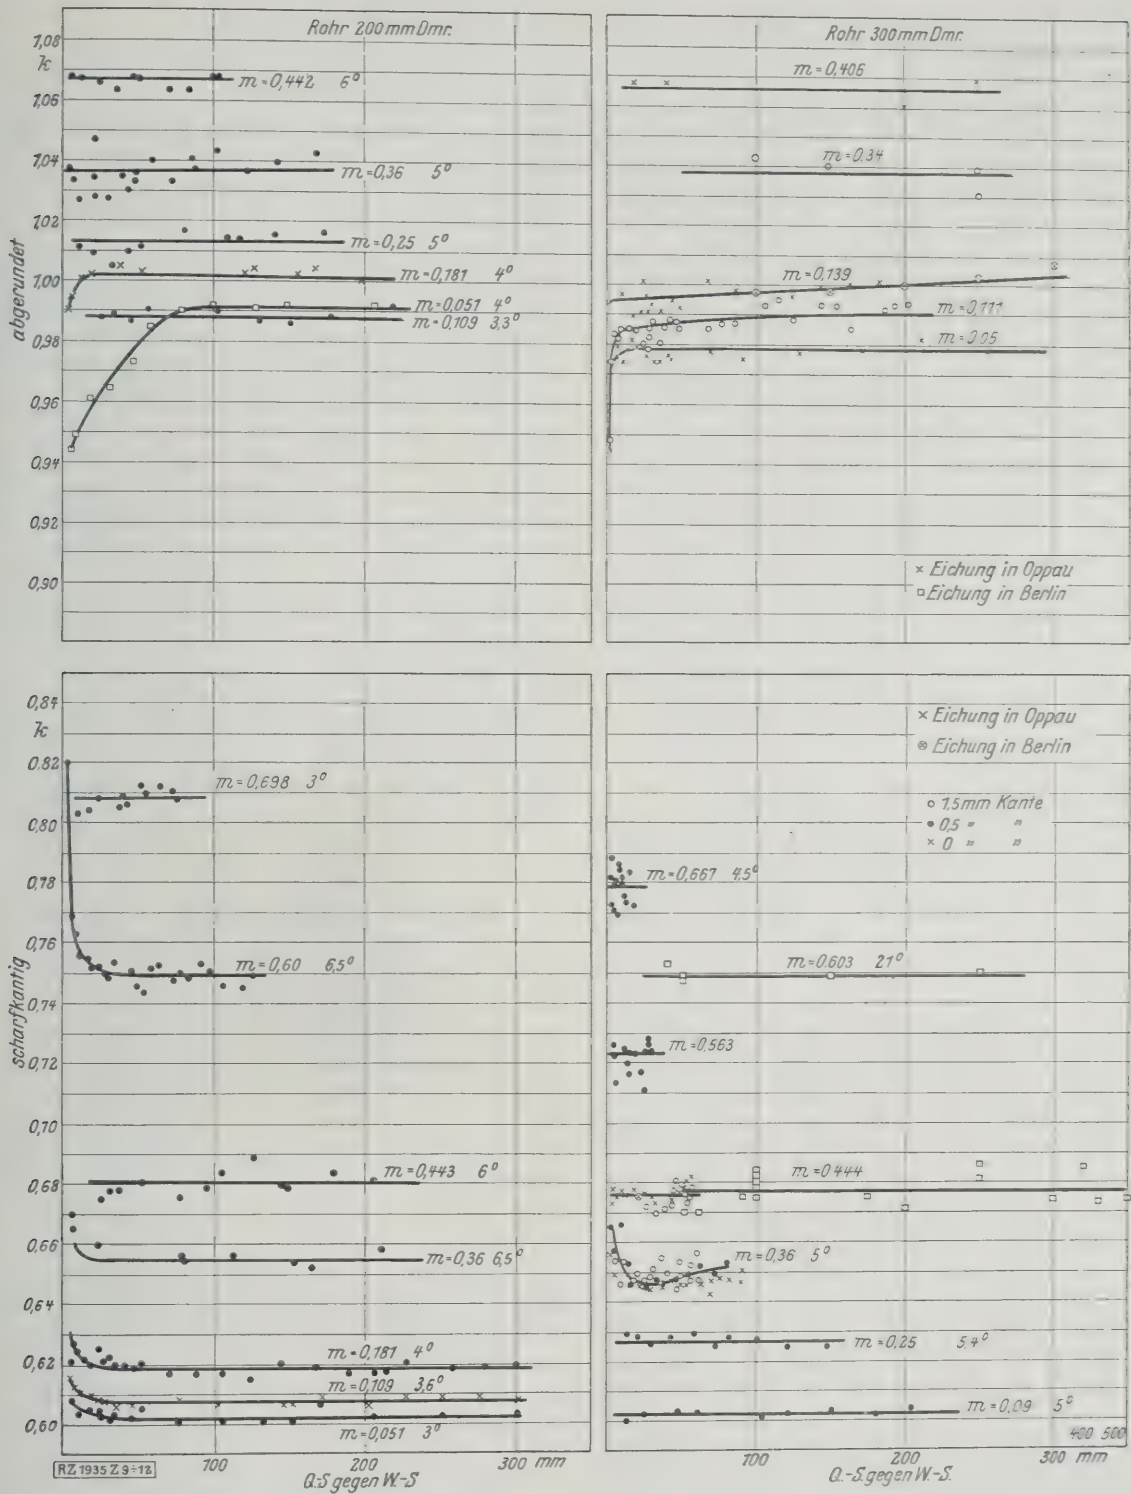 Rohr 200 mm Dmr.
1,08
k
1,06
1,04
1,02
1,00
0,98
0,96
0,94
0,92
0,90
abgerundet
m = 0,442 6°
m = 0,36 5°
m = 0,25 5°
m = 0,181 4°
m = 0,051 4°
m = 0,109 3,3°
Rohr 300 mm Dmr.
m = 0,406
m = 0.34
m = 0,139
m = 0,111
m = 0.05
× Eichung in Oppau
□ Eichung in Berlin
0,84
k
0,82
0,80
0,78
0,76
0,74
0,72
0,70
0,68
0,66
0,64
0,62
0,60
scharfkantig
m = 0,698 3°
m = 0,60 6,5°
m = 0,443 6°
m = 0,36 6,5°
m = 0,181 4°
m = 0,109 3,6°
m = 0,051 3°
RZ 1935 Z 9÷12
100
200
300 mm
Q.-S. gegen W.-S.
× Eichung in Oppau
⊗ Eichung in Berlin
○ 1,5 mm Kante
● 0,5 " "
× 0 " "
m = 0,667 4.5°
m = 0.603 21°
m = 0,563
m = 0.444
m = 0,36 5°
m = 0,25 5,4°
m = 0,09 5°
400 500
100
200
300 mm
Q.-S. gegen W.-S.